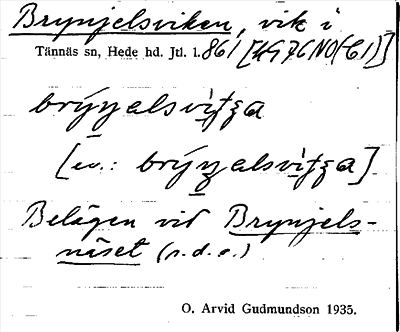 Brynjelsviken, vik i
Tännäs sn, Hede hd. Jtl. l. 861
brýn̲alsvìtʒa
[ev.: brýn̲alsvìtʒa]
Belägen vid Brynjels-
näset (s.d.o.)
O. Arvid Gudmundson 1935.